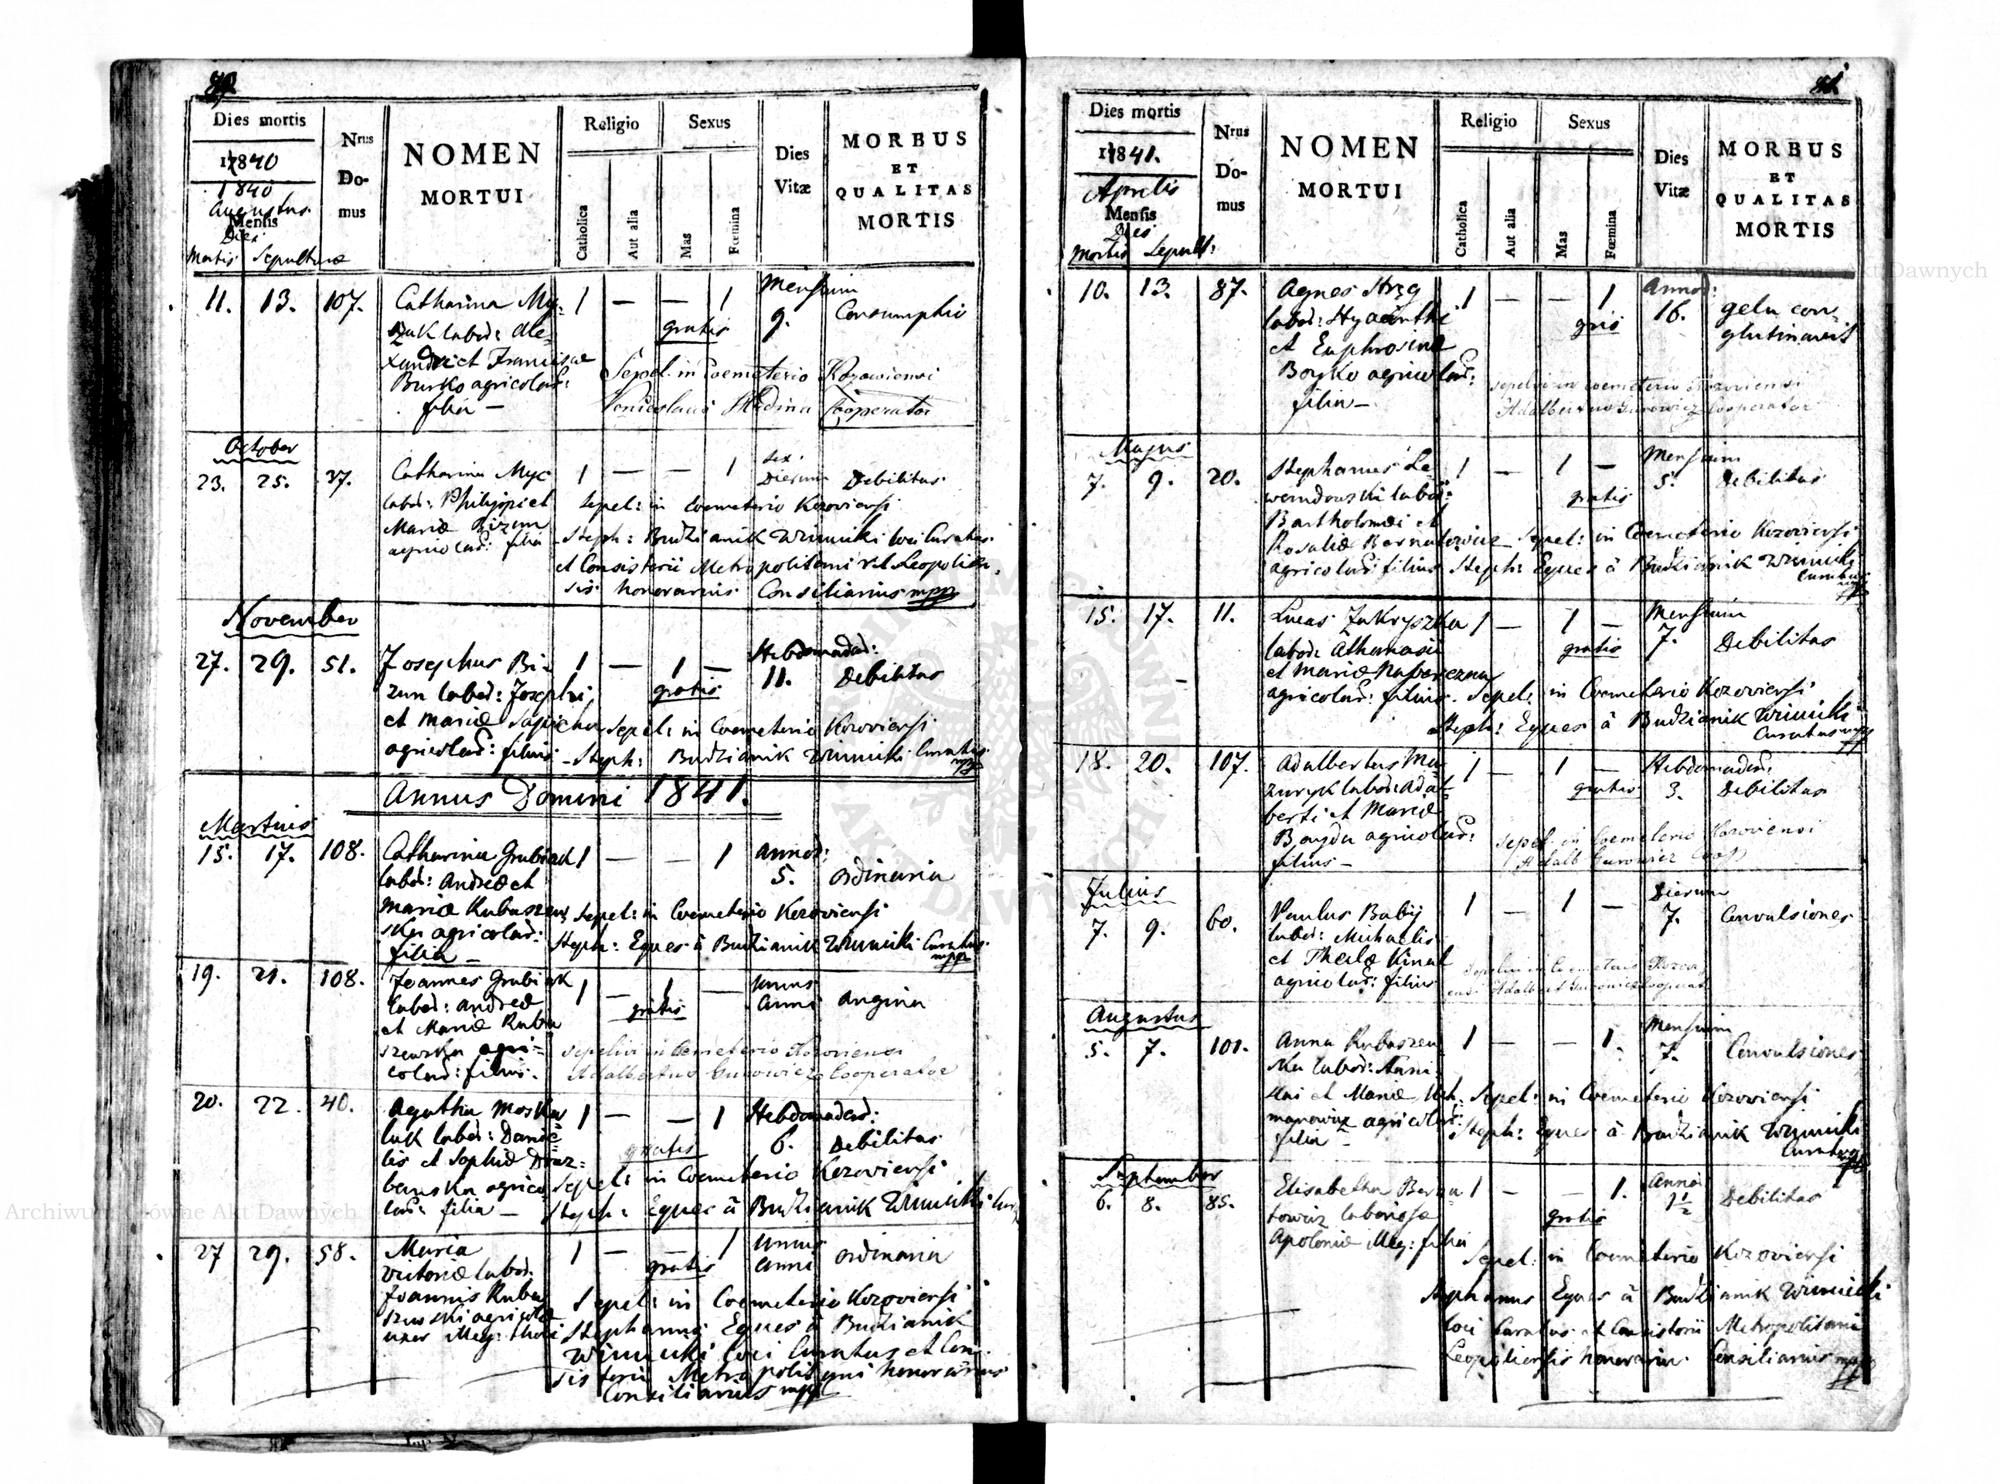 Dies mortis
Nrus Domus
NOMEN MORTUI
Religio
Sexus
Dies Vitæ
MORBUS ET QUALITAS MORTIS
1840
1840
Augustus
Mensis
Dies
Mortis Sepulturæ
Catholica
Aut alia
Mas
Fœmina
11. 13. 107. Catharina 1 — — 1 Mensium 9. Consumptio
gratis
labor: Ale-
xandri et Franciscae
Burko agricolar:
filia —
Sepel. in Coemeterio Kozowiensi
Cooperator
October
23. 25. 37. Catharina Myc 1 — — 1 sex Dierum Debilitas
labor: Philippi et
Mariæ Bizun
agricolar: filia
Sepel: in Coemeterio Kozoviensi
Steph: Budzianik Winnicki loci Curatus
et Consistorii Metropolitani r.l. Leopolien-
sis honorarius Consiliarius mpp
November
27. 29. 51. Josephus Bi- 1 — 1 — Hebdomadar: 11. Debilitas
gratis
zun labor: Josephi
et Mariæ Sapieha
agricolar: filius
Sepel: in Coemeterio Kozoviensi
Steph: Budzianik Winnicki Curatus
mpp
Annus Domini 1841.
Martius
15. 17. 108. Catharina Grubiak 1 — — 1 Annor: 5. ordinaria
labor: Andreæ et
Mariæ Rubaszew
ski agricolar:
filia —
Sepel: in Coemeterio Kozoviensi
Steph: Eques à Budzianik Winnicki Curatus
mpp
19. 21. 108. Joannes Grubiak 1 — 1 — unius Anni angina
gratis
labor: Andreæ
et Mariæ Ruba
szewska agri-
colar: filius.
sepelivi in Cemeterio Kozoviensi
Adalbertus Gurowicz Cooperator
20. 22. 40. Agatha Moska 1 — — 1 Hebdomadar: 6. Debilitas
gratis
luk labor: Danie-
lis et Sophiæ
banska agrico
lar: filia —
Sepel: in Coemeterio Kozoviensi
Steph: Eques à Budzianik Winnicki Cur
27 29. 58. Maria 1 — — 1 unius anni ordinaria
gratis
Victoriæ labor.
Joannis Ruba
szewski agricolæ
uxor
Sepel: in Coemeterio Kozoviensi
Stephanus Eques à Budzianik
Winnicki loci Curatus et Con-
sistorii Metropolitani honorarius
Consiliarius mpp
81
Dies mortis
Nrus Domus
NOMEN MORTUI
Religio
Sexus
Dies Vitæ
MORBUS ET QUALITAS MORTIS
1841.
Aprilis
Mensis
Dies
Mortis Sepult:
Catholica
Aut alia
Mas
Fœmina
10. 13. 87. Agnes 1 — — 1 Annor: 16. gelu con-
glutinavit
gris
labor: Hyacinthi
et Euphrosinæ
Boyko agricolar:
filia —
sepelivi in coemeterio Kozoviensi
Adalbertus Gurowicz Cooperator
Majus
7. 9. 20. Stephanus Le 1 — 1 — Mensium 5. Debilitas
gratis
wendowski labor:
Bartholomæi et
Rosaliæ Bernatowicz
agricolar: filius
Sepel: in Coemeterio Kozoviensi
Steph: Eques à Budzianik Winnicki
Curatus
15. 17. 11. Lucas Zakryszka 1 — 1 — Mensium 7. Debilitas
gratis
labor: Athanasii
et Mariæ
agricolar: filius.
Sepel: in Coemeterio Kozoviensi
Steph: Eques à Budzianik Winnicki
Curatus mpp
18. 20. 107. Adalbertus Ma- 1 — 1 — Hebdomadar: 3. Debilitas
gratis
zuryk labor: Adal-
berti et Mariæ
Bayda agricolar:
filius —
sepel. in Coemeterio Kozoviensi
Adalb Gurowicz Coop
Julius
7. 9. 60. Paulus Babij 1 — 1 — Dierum 7. Convulsiones
labor: Michaelis
et Theclæ Kinal
agricolar: filius
sepelivi in Coemeterio Kozovi
ensi Adalbert Gurowicz Cooperat
Augustus
5. 7. 101. Anna Rubaszew 1 — — 1. Mensium 7. Convulsiones
ska labor:
et Mariæ
manowicz agricolar:
filia —
Sepel: in Coemeterio Kozoviensi
Steph: Eques à Budzianik Winnicki
Curatus
September
6. 8. 85. Elisabetha Berna 1 — — 1. Anni 1½ Debilitas
gratis
towicz laboriosæ
Apoloniæ filia
Sepel: in Coemeterio Kozoviensi
Stephanus Eques à Budzianik Winnicki
loci Curatus et Consistorii Metropolitani
Leopoliensis honorarius Consiliarius mpp
Archiwum Główne Akt Dawnych